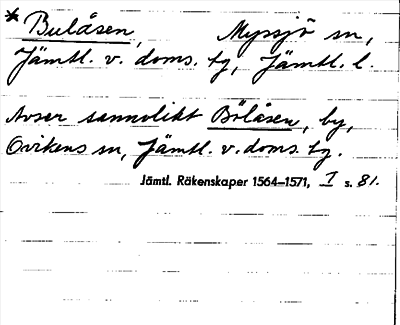 * Bulåsen, Myssjö sn,
Jämtl. v. doms. tg, Jämtl. l.
Avser sannolikt Bölåsen, by,
Ovikens sn, Jämtl. v. doms. tg.
Jämtl. Räkenskaper 1564–1571, I s. 81.